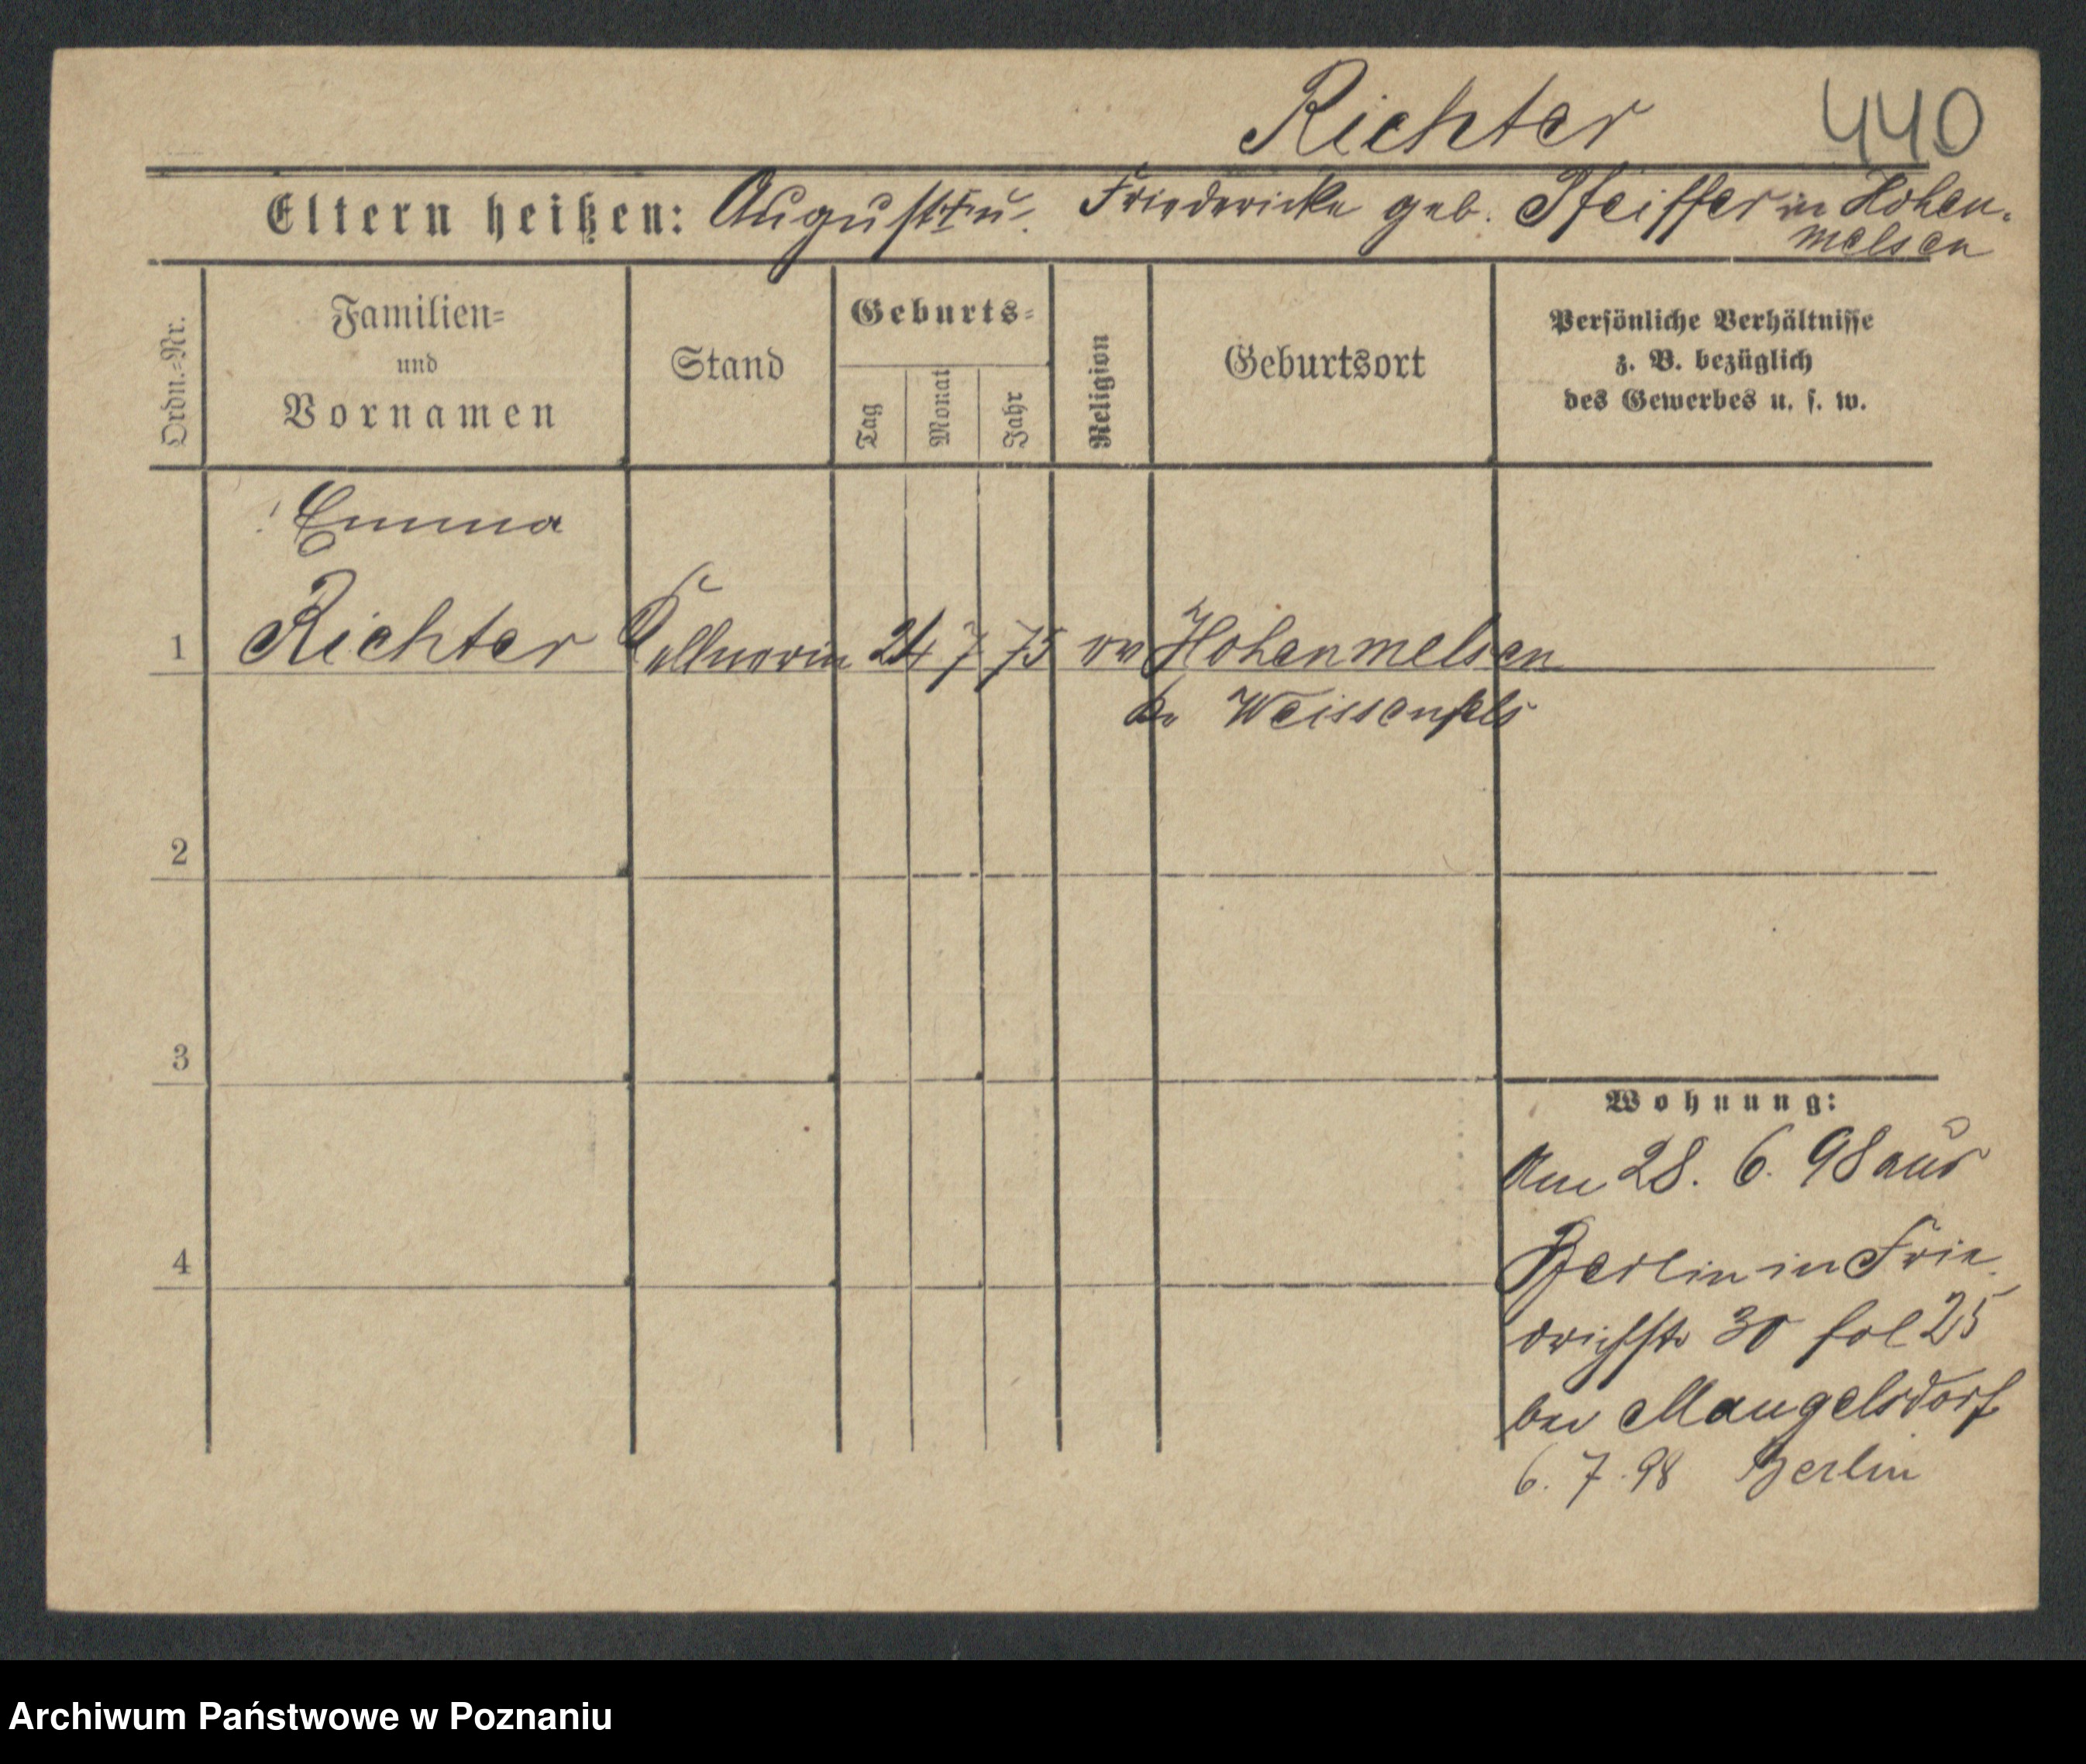 Richter 440
Eltern heißen: August † u. Friedericke geb. Pfeiffer in Hohen-
melsen
Ordn.-Nr.
Familien-
und
Vornamen
Stand
Geburts-
Tag
Monat
Jahr
Religion
Geburtsort
Persönliche Verhältnisse
z. B. bezüglich
des Gewerbes u. s. w.
Emma
1 Richter Kellnerin 24 7 75 ev Hohenmelsen
Kr Weissenfels
2
3
Wohnung:
Am 28. 6. 98 aus
4
Berlin in Frie
drichstr 30 fol 25
bei Mangelsdorf
6. 7. 98 Berlin
Archiwum Państwowe w Poznaniu